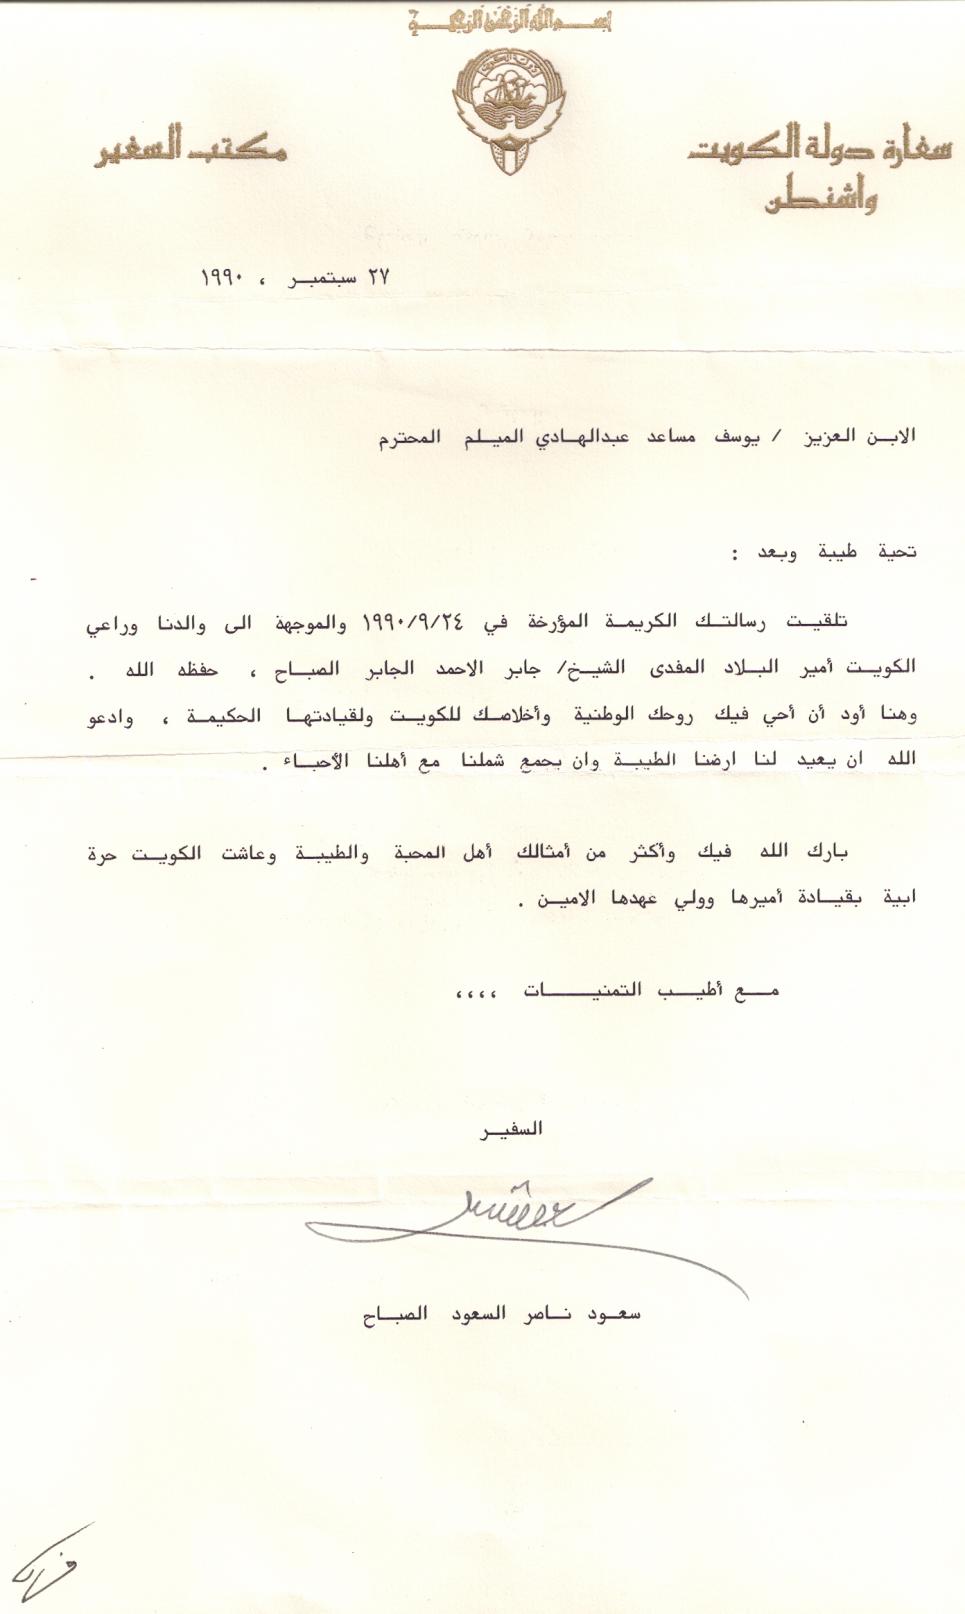 بسم الله الرحمن الرحيم
دولة الكويت
سفارة دولة الكويت
واشنطن
مكتب السفير
٢٧ سبتمبر ، ١٩٩٠
الابن العزيز / يوسف مساعد عبدالهادي الميلم المحترم
تحية طيبة وبعد :
تلقيت رسالتك الكريمة المؤرخة في ١٩٩٠/٩/٢٤ والموجهة الى والدنا وراعي
الكويت أمير البلاد المفدى الشيخ/ جابر الاحمد الجابر الصباح ، حفظه الله .
وهنا أود أن أحي فيك روحك الوطنية وأخلاصك للكويت ولقيادتها الحكيمة ، وادعو
الله ان يعيد لنا ارضنا الطيبة وان بجمع شملنا مع أهلنا الأحباء .
بارك الله فيك وأكثر من أمثالك أهل المحبة والطيبة وعاشت الكويت حرة
ابية بقيادة أميرها وولي عهدها الامين .
مع أطيب التمنيات ،،،،
السفير
سعود ناصر السعود الصباح